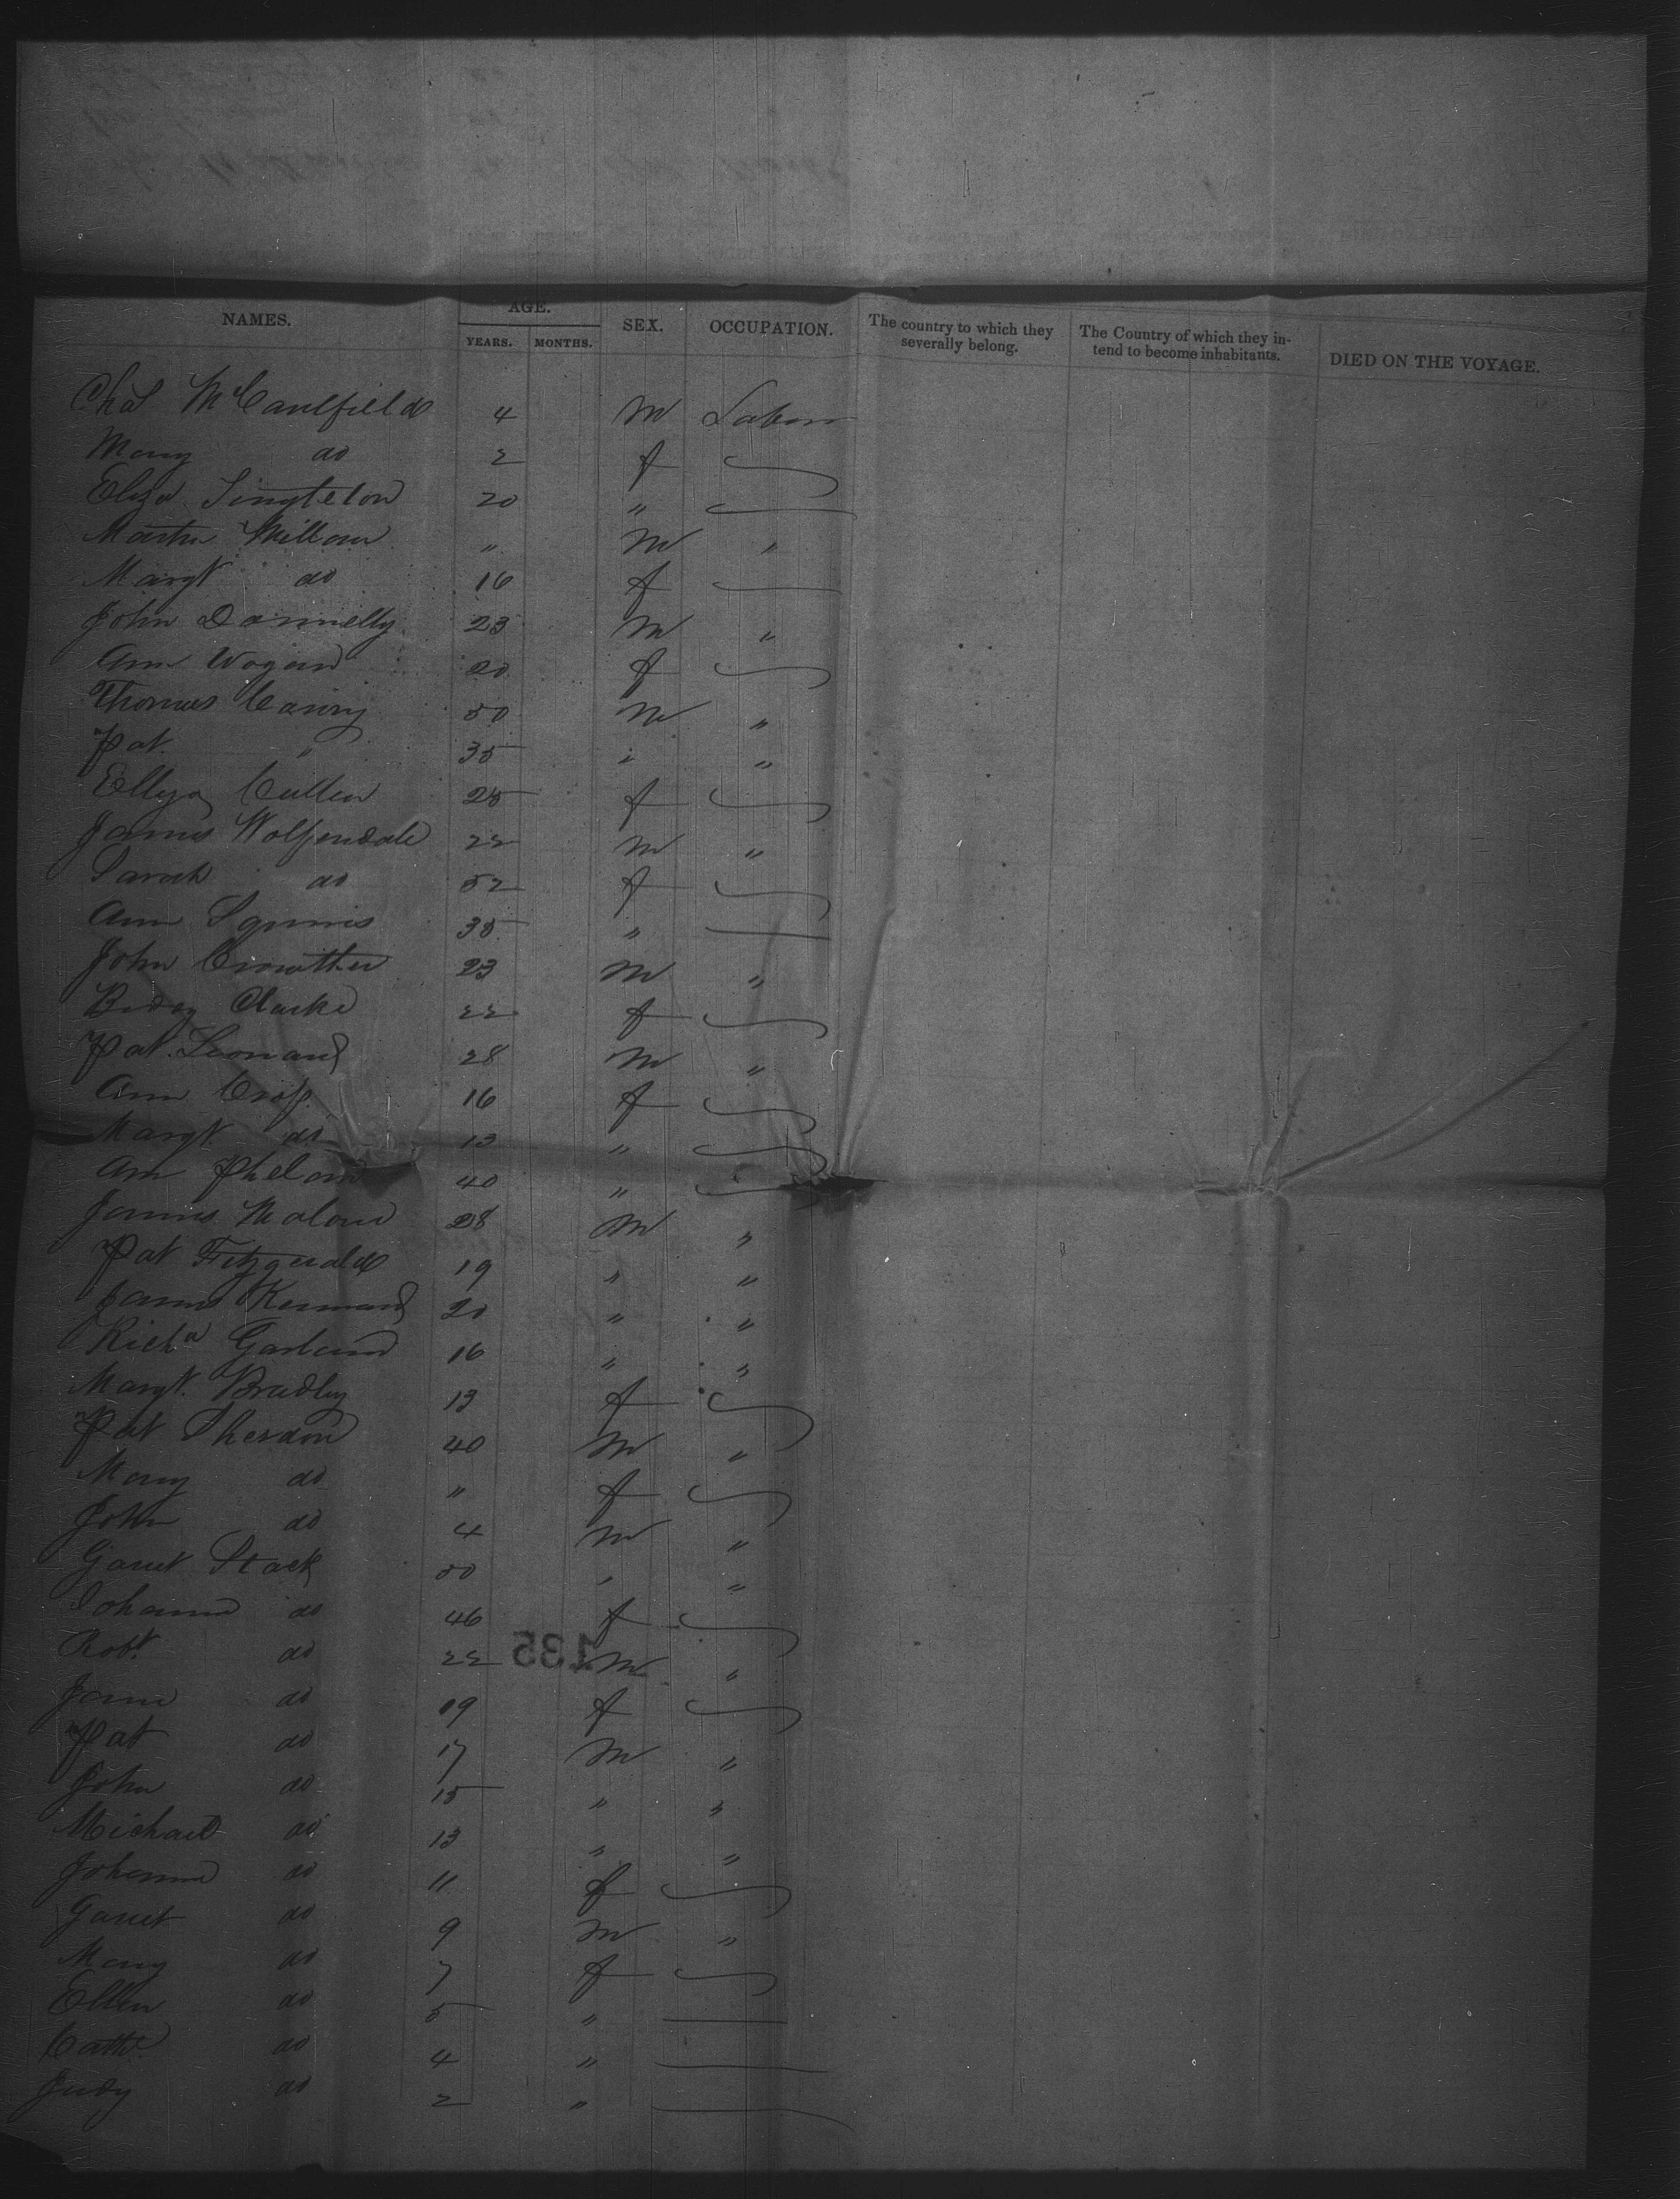 NAMES. AGE. YEARS. MONTHS. SEX. OCCUPATION. The country to which they severally belong. The Country of which they intend to become inhabitants. DIED ON THE VOYAGE.
Chas McCaulfield 4 M Labour
Mary do 2 f
Eliza Singleton 20 "
Martin " M "
Margt do 16 f
John Donnelly 23 M "
Ann Wogan 20 f
Thomas 50 M "
Pat " 35 "
Cullen 25 f
James Wolfendale 22 M "
Sarah do 52 f
Ann Squires 35 "
John Crowther 23 M "
Bridgy Clarke 22 f
Pat Leonard 28 M "
Ann 16 f
Margt do 13 "
Ann Phelan 40 "
James Malone 28 M "
Pat Fitzgerald 19 " "
James 20 " "
Richd Garland 16 " "
Margt. Bradley 13 f
Pat Sherdon 40 M "
Mary do " f
John do 4 M "
Garret Stack 50 " "
Johanna do 46 f
135
Robt do 22 M "
Jane do 19 f
Pat do 17 M "
John do 15 " "
Michael do 13 " "
Johanna do 11 f
Garret do 9 M "
Mary do 7 f
Ellen do 5 "
Cathe do 4 "
Judy do 2 "